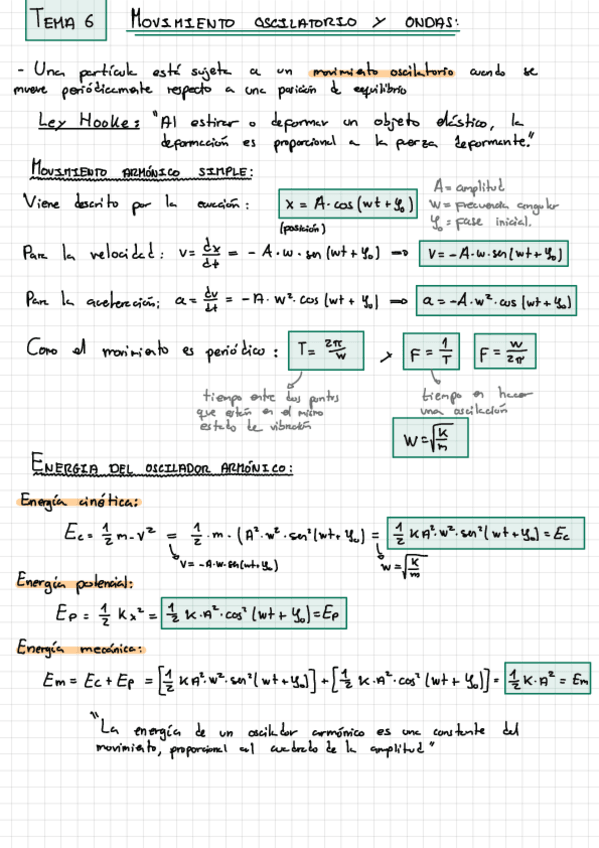 TEMA 6 MOVIMIENTO OSCILATORIO Y ONDAS:
- Una partícula está sujeta a un movimiento oscilatorio cuando se
mueve periódicamente respecto a una posición de equilibrio
Ley Hooke: "Al estirar o deformar un objeto elástico, la
deformación es proporcional a la fuerza deformante."
MOVIMIENTO ARMÓNICO SIMPLE:
A = amplitud
Viene descrito por la ecuación: x = A · cos (wt + φ₀) w = frecuencia angular
(posición) φ₀ = fase inicial.
Para la velocidad: v = dx/dt = - A · w · sen (wt + φ₀) ⇒ v = - A · w · sen (wt + φ₀)
Para la aceleración: a = dv/dt = - A · w² · cos (wt + φ₀) ⇒ a = - A · w² · cos (wt + φ₀)
Como el movimiento es periódico: T = 2π/w , F = 1/T F = w/2π
tiempo entre dos puntos tiempo en hacer
que estén en el mismo una oscilación
estado de vibración
w = √(K/m)
ENERGIA DEL OSCILADOR ARMÓNICO:
Energía cinética:
Ec = 1/2 m · v² = 1/2 · m · (A² · w² · sen² (wt + φ₀) = 1/2 K A² · w² · sen² (wt + φ₀) = Ec
v = - A · w · sen (wt + φ₀) w = √(K/m)
Energía potencial:
Ep = 1/2 K x² = 1/2 K · A² · cos² (wt + φ₀) = Ep
Energía mecánica:
Em = Ec + Ep = [1/2 K A² · w² · sen² (wt + φ₀)] + [1/2 K · A² · cos² (wt + φ₀)] = 1/2 K · A² = Em
"La energía de un oscilador armónico es una constante del
movimiento, proporcional al cuadrado de la amplitud"